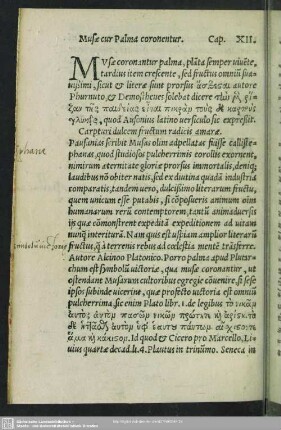 Musæ cur Palma coronentur. Cap. XII.
MVsæ coronantur palma, plāta semper viuēte,
tardius item crescente, sed fructus omnium sua-
uissimi, sicut & literæ sunt prorsus autore
Phurnuto, & Demosthenes solebat dicere
quod Ausonius latino versiculo sic expressit.
Carpturi dulcem fructum radicis amaræ.
Pausanias scribit Musas olim adpellatas fuisse callisste-
phanas, quod studiosos pulcherrimis corollis exornent,
nimirum æternitate gloriæ prorsus immortalis, deniq;
laudibus nō obiter natis, sed ex diutina quadā industria
comparatis, tandem uero, dulcissimo literarum fructu,
quem unicum esse putabis, si cōposueris animum oīm
humanarum rerū contemptorem, tantū animaduersis
in quæ cōmonstrent expeditā expeditionem ad uitam
nunq̄ interiturā. Nam quis est usπiam amplior literarū
fructus, q̄ à terrenis rebus ad cœlestia mentē trāsferre.
Autore Alcinoo Platonico. Porro palma apud Plutar-
chum est symbolū uictoriæ, qua musæ coronantur, ut
ostendant Musarum cultoribus egregie cōuenire, si se se
ipsos subinde uicerint, quæ profecto uictoria est omniū
pulcherrima, sic enim Plato libr. 1. de legibus τὸ νικᾶν
Id quod & Cicero pro Marcello, Li-
uius quartæ decad. li. 4. Plautus in trinūmo. Seneca in